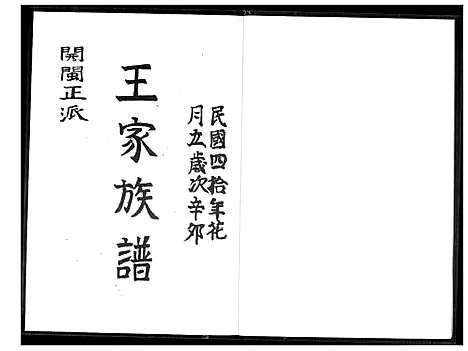 民國四拾年花
月立歲次辛夘
王家族譜
開閩正派